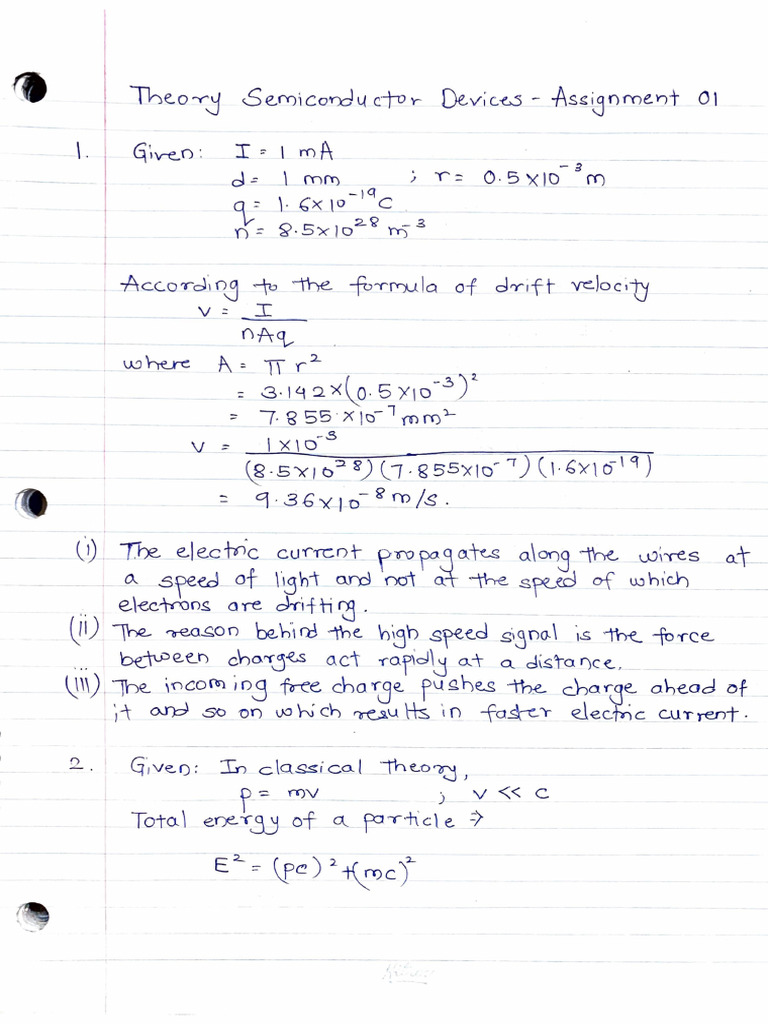 Theory Semiconductor Devices - Assignment 01
1. Given: I = 1 mA
d = 1 mm ; r = 0.5×10⁻³ m
q = 1.6×10⁻¹⁹ C
n = 8.5×10²⁸ m⁻³
According to the formula of drift velocity
v = I
nAq
where A = πr²
= 3.142×(0.5×10⁻³)²
= 7.855×10⁻⁷ mm²
v = 1×10⁻³
(8.5×10²⁸)(7.855×10⁻⁷)(1.6×10⁻¹⁹)
= 9.36×10⁻⁸ m/s.
(i) The electric current propagates along the wires at
a speed of light and not at the speed of which
electrons are drifting.
(ii) The reason behind the high speed signal is the force
between charges act rapidly at a distance.
(iii) The incoming free charge pushes the charge ahead of
it and so on which results in faster electric current.
2. Given: In classical theory,
p = mv ; v << c
Total energy of a particle ⇒
E² = (pc)² + (mc)²